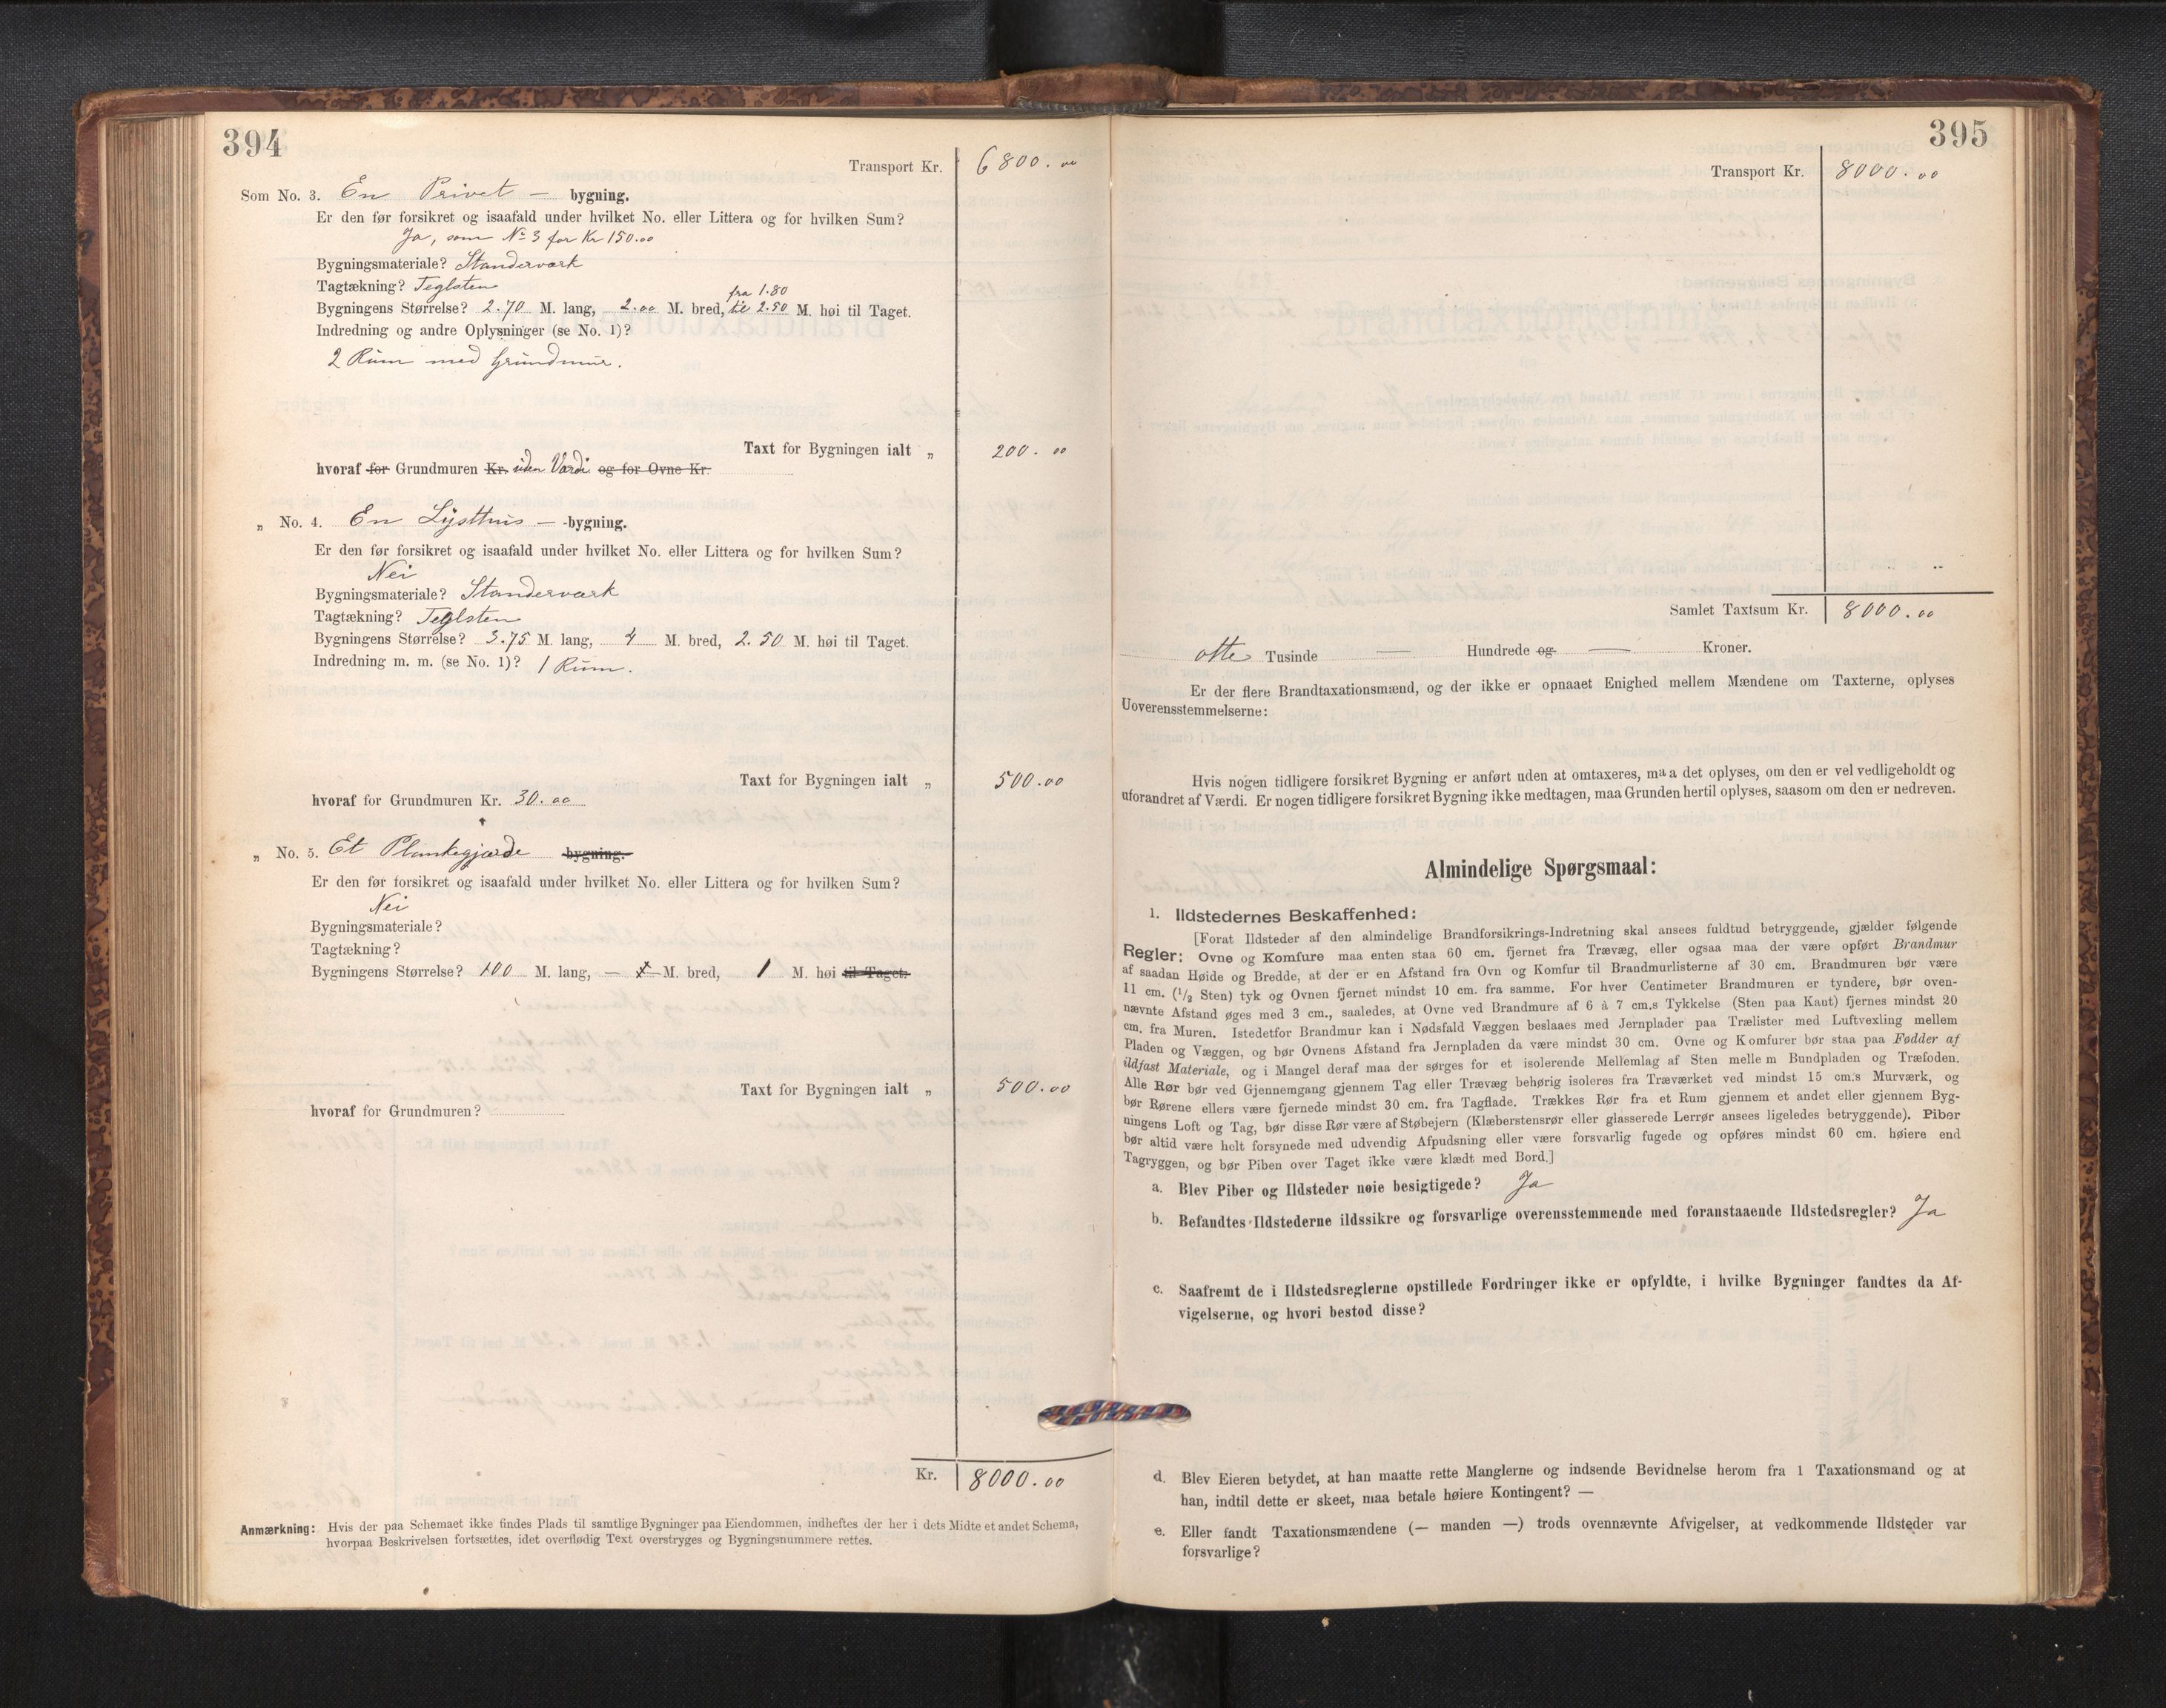 394
Transport Kr. 6800.00
Som No. 3. En Privet — bygning.
Er den før forsikret og isaafald under hvilket No. eller Littera og for hvilken Sum?
Ja, som No 3 for Kr 150.00
Bygningsmateriale? Standerværk
Tagtækning? Teglsten
fra 1.80
Bygningens Størrelse? 2.70 M. lang, 2.00 M. bred, til 2.50 M. høi til Taget.
Indredning og andre Oplysninger (se No. 1)?
2 Rum med Grundmur.
Taxt for Bygningen ialt „ 200.00
hvoraf for Grundmuren Kr. uden Værdi og for Ovne Kr.
„ No. 4. En Lysthus — -bygning.
Er den før forsikret og isaafald under hvilket No. eller Littera og for hvilken Sum?
Nei
Bygningsmateriale? Standerværk
Tagtækning? Teglsten
Bygningens Størrelse? 3.75 M. lang, 4 M. bred, 2.50 M. høi til Taget.
Indredning m. m. (se No. 1)? 1 Rum.
Taxt for Bygningen ialt „ 500.00
hvoraf for Grundmuren Kr. 30.00
„ No. 5. Et Plankegjærde bygning.
Er den før forsikret og isaafald under hvilket No. eller Littera og for hvilken Sum?
Nei
Bygningsmateriale?
Tagtækning?
Bygningens Størrelse? 100 M. lang, — M. bred, 1 M. høi til Taget.
Taxt for Bygningen ialt „ 500.00
hvoraf for Grundmuren?
Kr. 8000.00
Anmærkning: Hvis der paa Schemaet ikke findes Plads til samtlige Bygninger paa Eiendommen, indheftes der her i dets Midte et andet Schema,
hvorpaa Beskrivelsen fortsættes, idet overflødig Text overstryges og Bygningsnummere rettes.
395
Transport Kr. 8000.00
Samlet Taxtsum Kr. 8000.00
otte Tusinde — Hundrede og — Kroner.
Er der flere Brandtaxationsmænd, og der ikke er opnaaet Enighed mellem Mændene om Taxterne, oplyses
Uoverensstemmelserne:
Hvis nogen tidligere forsikret Bygning er anført uden at omtaxeres, maa det oplyses, om den er vel vedligeholdt og
uforandret af Værdi. Er nogen tidligere forsikret Bygning ikke medtagen, maa Grunden hertil oplyses, saasom om den er nedreven.
Almindelige Spørgsmaal:
1. Ildstedernes Beskaffenhed:
[Forat Ildsteder af den almindelige Brandforsikrings-Indretning skal ansees fuldtud betryggende, gjælder følgende
Regler: Ovne og Komfure maa enten staa 60 cm. fjernet fra Trævæg, eller ogsaa maa der være opført Brandmur
af saadan Høide og Bredde, at der er en Afstand fra Ovn og Komfur til Brandmurlisterne af 30 cm. Brandmuren bør være
11 cm. (1/2 Sten) tyk og Ovnen fjernet mindst 10 cm. fra samme. For hver Centimeter Brandmuren er tyndere, bør oven-
nævnte Afstand øges med 3 cm., saaledes, at Ovne ved Brandmure af 6 à 7 cm.s Tykkelse (Sten paa Kant) fjernes mindst 20
cm. fra Muren. Istedetfor Brandmur kan i Nødsfald Væggen beslaaes med Jernplader paa Trælister med Luftvexling mellem
Pladen og Væggen, og bør Ovnens Afstand fra Jernpladen da være mindst 30 cm. Ovne og Komfurer bør staa paa Fødder af
ildfast Materiale, og i Mangel deraf maa der sørges for et isolerende Mellemlag af Sten mellem Bundpladen og Træfoden.
Alle Rør bør ved Gjennemgang gjennem Tag eller Trævæg behørig isoleres fra Træværket ved mindst 15 cm.s Murværk, og
bør Rørene ellers være fjernede mindst 30 cm. fra Tagflade. Trækkes Rør fra et Rum gjennem et andet eller gjennem Byg-
ningens Loft og Tag, bør disse Rør være af Støbejern (Klæberstensrør eller glasserede Lerrør ansees ligeledes betryggende). Piber
bør altid være helt forsynede med udvendig Afpudsning eller være forsvarlig fugede og opføres mindst 60 cm. høiere end
Tagryggen, og bør Piben over Taget ikke være klædt med Bord.]
a. Blev Piber og Ildsteder nøie besigtigede? Ja
b. Befandtes Ildstederne ildssikre og forsvarlige overensstemmende med foranstaaende Ildstedsregler? Ja
c. Saafremt de i Ildstedsreglerne opstillede Fordringer ikke er opfyldte, i hvilke Bygninger fandtes da Af-
vigelserne, og hvori bestod disse?
d. Blev Eieren betydet, at han maatte rette Manglerne og indsende Bevidnelse herom fra 1 Taxationsmand og at
han, indtil dette er skeet, maa betale høiere Kontingent? —
e. Eller fandt Taxationsmændene (— manden —) trods ovennævnte Afvigelser, at vedkommende Ildsteder var
forsvarlige?